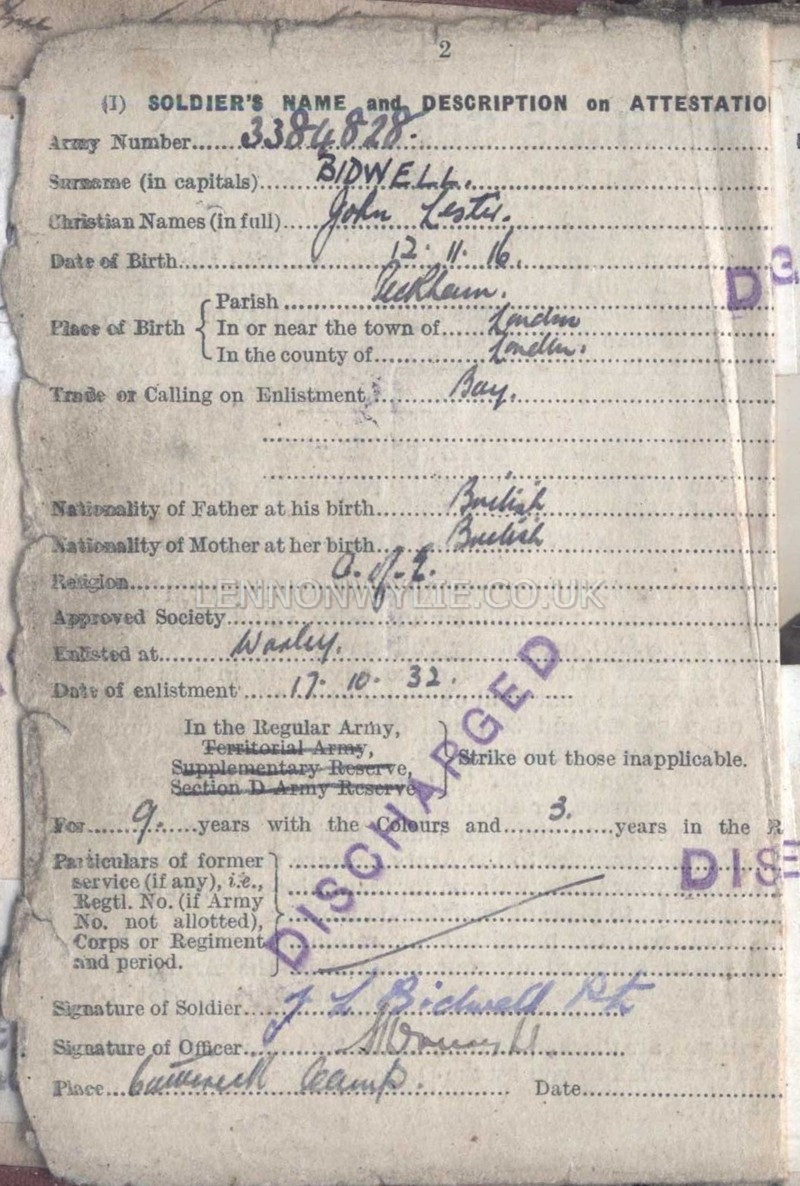 2
(I) SOLDIER'S NAME and DESCRIPTION on ATTESTATIO
Army Number......3384828.
Surname (in capitals)......BIDWELL.
Christian Names (in full)....John Leslie.
Date of Birth......12. 11. 16.
Place of Birth
Parish......Peckham.
In or near the town of......London
In the county of......London.
Trade or Calling on Enlistment......Boy.
Nationality of Father at his birth......British
Nationality of Mother at her birth......British
Religion......C. of E.
LENNONWYLIE.CO.UK
Approved Society......
Enlisted at......Warley.
Date of enlistment......17. 10. 32.
In the Regular Army,
Territorial Army,
Supplementary Reserve,
Section D Army Reserve
Strike out those inapplicable.
For......9......years with the Colours and......3......years in the R
Particulars of former
service (if any), i.e.,
Regtl. No. (if Army
No. not allotted),
Corps or Regiment
and period.
DISCHARGED
D
DIS
Signature of Soldier......J L Bidwell
Signature of Officer......
Place...Catterick Camp. Date......